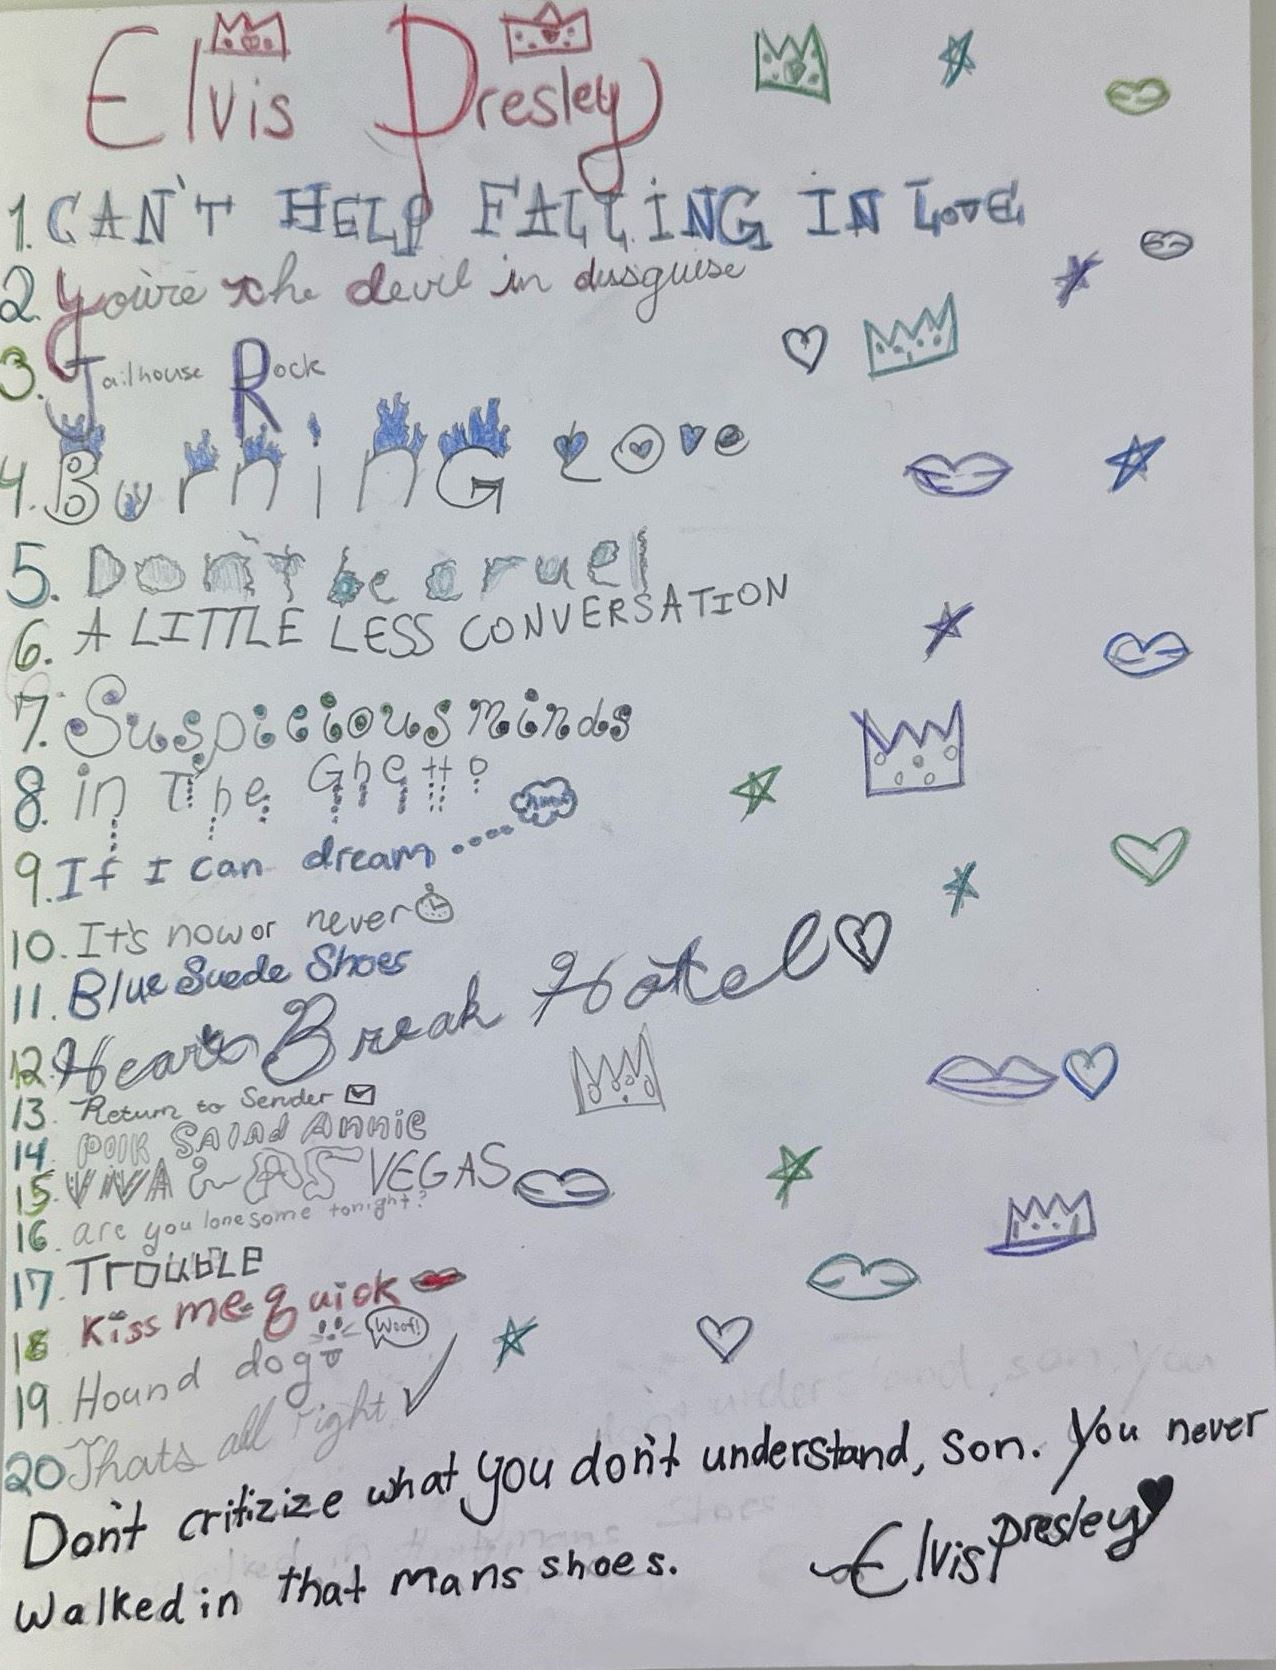 Elvis Presley
1. CAN'T HELP FALLING IN LOVE
2. You're the devil in disguise
3. Jailhouse Rock
4. BurninG Love
5. Don't be cruel
6. A LITTLE LESS CONVERSATION
7. Suspicious minds
8. in The Ghetto
9. If I can dream....
10. It's now or never
11. Blue Suede Shoes
12. HeartBreak Hotel
13. Return to Sender
14. POlK SAlAd ANNiE
15. VIVA LAS VEGAS
16. are you lonesome tonight?
17. TROUBLE
18 Kiss me quick
19. Hound dog Woof!
20 Thats all right
Don't critizize what you don't understand, son. You never
walked in that mans shoes. Elvis Presley